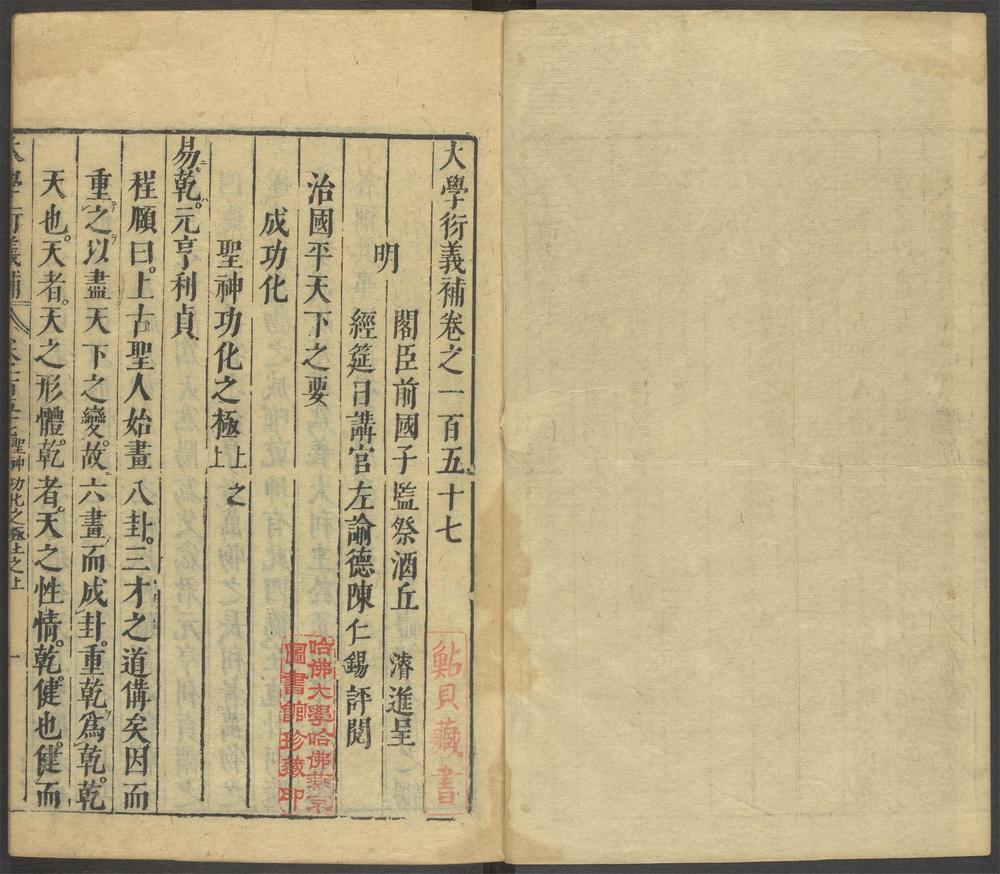 大學衍義補卷之一百五十七
明
閣臣前國子監祭酒丘濬進呈
經筵日講官左諭德陳仁錫評閱
治國平天下之要
成功化
聖神功化之極上之上
易乾。元亨利貞
程頤曰。上古聖人始畫八卦。三才之道備矣。因而
重之以盡天下之變。故六畫而成卦。重乾爲乾。乾
天也。天者。天之形體。乾者。天之性情。乾。健也。健而
大學衍義補
聖神功化之極上之上
一
鮎貝藏書
哈佛大學哈佛燕京
圖書館珍藏印